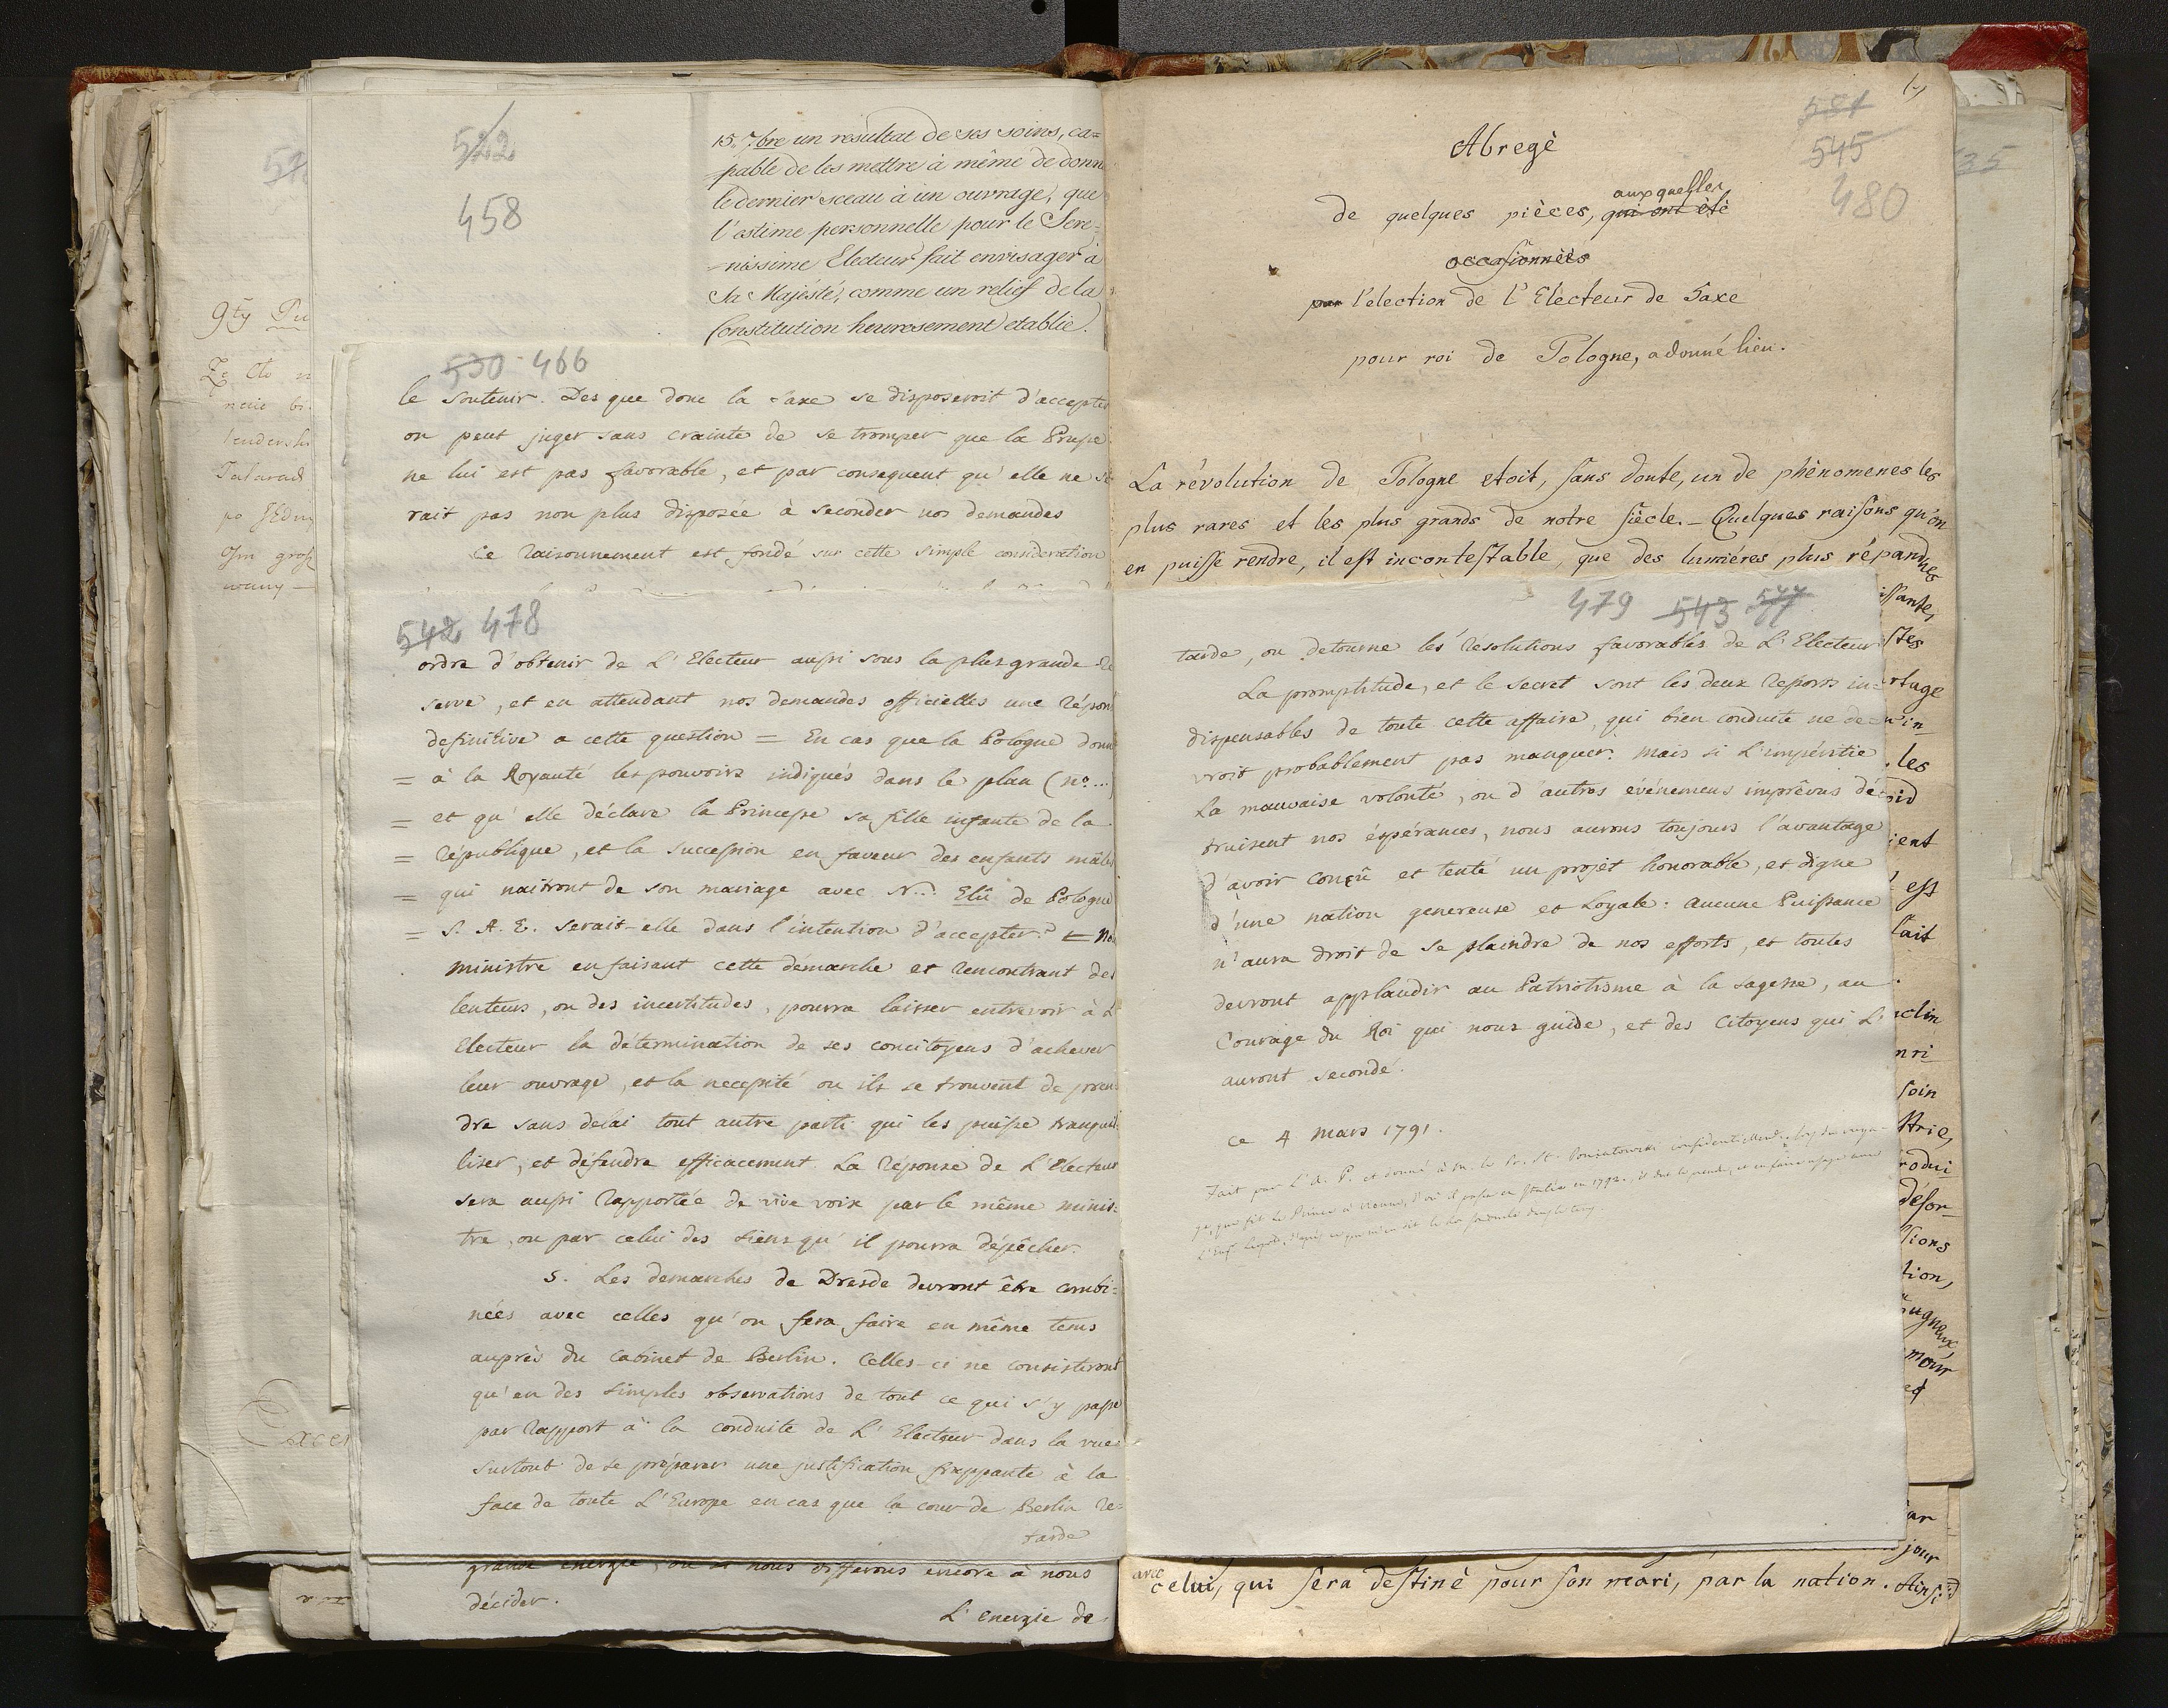 522
458
15. 7bre un resultat de ses soins, ca=
pable de les mettre à même de donn
le dernier sceau à un ouvrage, que
l'estime personnelle pour le Sere=
=nissime Electeur fait envisager à
Sa Majésté, comme un relief de la
Constitution heureusement etablie.
530 - 466
le soutenir. Des que donc la Saxe se disposeroit d'accepter
on peut juger sans crainte de se tromper que la Prusse
ne lui est pas favorable, et par consequent qu'elle ne se
rait pas non plus disposée à seconder nos demandes
Ce raisonnement est fondé sur cette simple consideration
542 478
ordre d'obtenir de L'Electeur aussi sous la plus grande re
serve, et en attendant nos demandes officielles une répon
definitive a cette question = En cas que la Pologne donn
= à la Royauté les pouvoirs indiqués dans le plan (nº...
= et qu'elle déclare la Princesse sa fille infante de la
= République, et la succession en faveur des enfants mâles
= qui naitront de son mariage avec N... Elû de Pologne
= S. A. E. serait-elle dans l'intention d'accepter?
ministre en faisant cette démarche et rencontrant des
lenteurs, ou des incertitudes, pourra laisser entrevoir à L'
Electeur la détermination de ses concitoyens d'achever
leur ouvrage, et la necessité ou ils se trouvent de pren=
dre sans delai tout autre parti qui les puisse tranquil=
liser, et défendre efficacement. La réponse de L'Electeur
sera aussi rapportée de vive voix par le même minis=
tre, ou par celui des siens qu'il pourra dépêcher.
5. Les demarches de Dresde devront être combi=
nées avec celles qu'on fera faire en même tems
auprès du cabinet de Berlin. Celles-ci ne consisteront
qu'en des simples observations de tout ce qui s'y passe
par rapport à la conduite de L'Electeur dans la vue
surtout de se préparer une justification frappante à la
face de toute L'Europe en cas que la cour de Berlin re=
tarde
grande energie, ou si nous differons encore à nous
décider.
L'energie de
551
545
480
Abregè
de quelques pièces, auxquelles qui ont étè
occasionnèes
par l'election de l'Electeur de Saxe
pour roi de Pologne, a donné lieu.
La rêvolution de Pologne etoit, sans doute, un de phènomenes les
plus rares et les plus grands de notre siècle. - Quelques raisons qu'on
en puisse rendre, il est incontestable, que des lumiéres plus répandues
479 543 544
tarde, ou detourne les résolutions favorables de L'Electeur
La promptitude, et le secret sont les deux ressorts in=
dispensables de toute cette affaire, qui bien conduite ne de=
vroit probablement pas manquer. Mais si L'impéritie
La mauvaise volonté, ou d'autres événemens imprêvus dé=
truisent nos éspérances, nous aurons toujours l'avantage
d'avoir conçû et tenté un projet honorable, et digne
d'une nation genereuse et Loyale: aucune Puissance
n'aura droit de se plaindre de nos efforts, et toutes
devront applaudir au Patriotisme à la sagesse, au
Courage du Roi qui nous guide, et des Citoyens qui L'
auront secondé.
ce 4 Mars 1791.
Fait par L'A. P. et donné à M. le Pr. St. Poniatowski confidentiellement
avec celui, qui sera destinè pour son mari, par la nation. Ainsi